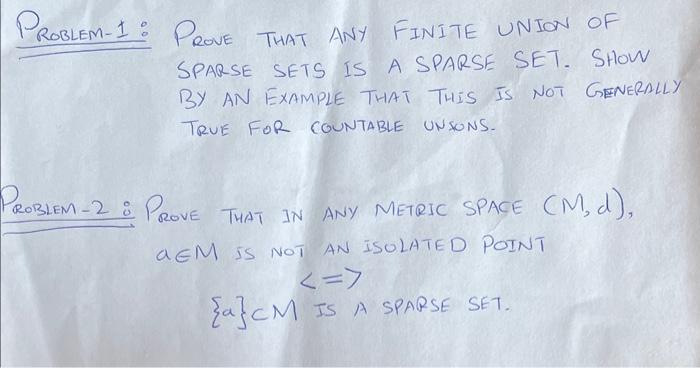 PROBLEM-1: PROVE THAT ANY FINITE UNION OF
SPARSE SETS IS A SPARSE SET. SHOW
BY AN EXAMPLE THAT THIS IS NOT GENERALLY
TRUE FOR COUNTABLE UNSONS.
PROBLEM-2: PROVE THAT IN ANY METRIC SPACE (M, d),
a∈M IS NOT AN ISOLATED POINT
<=>
{a}⊂M IS A SPARSE SET.